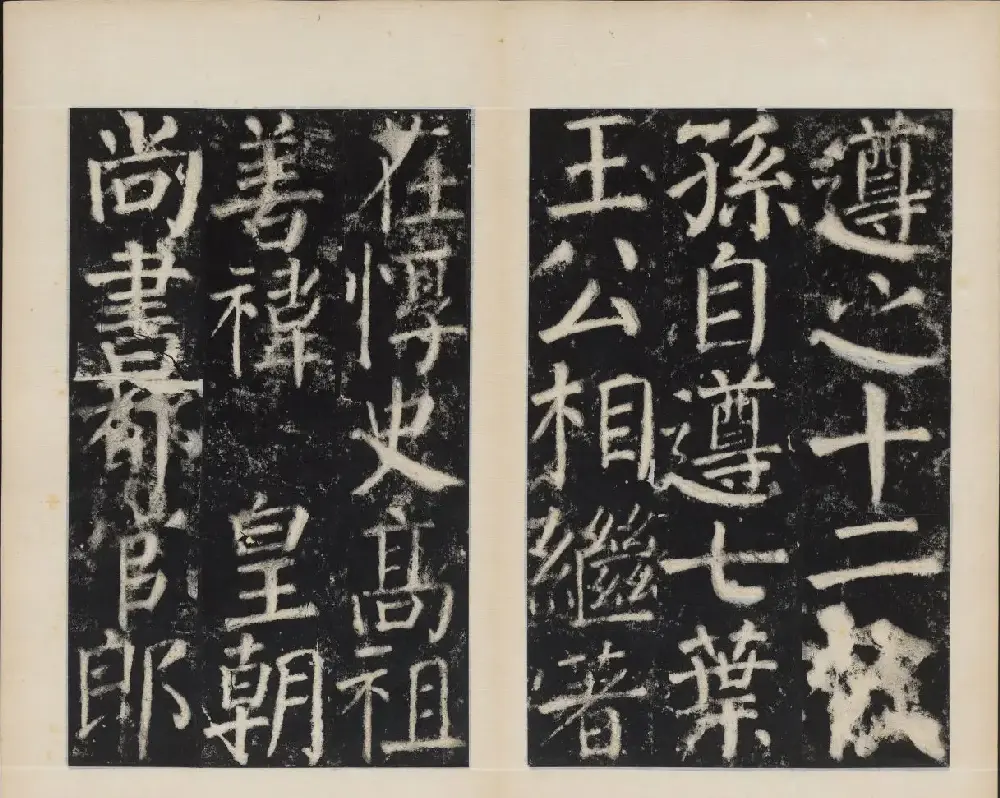 遵之十二
孫自遵七葉
王公相繼著
在惇史高祖
善禕 皇朝
尚書都官郎